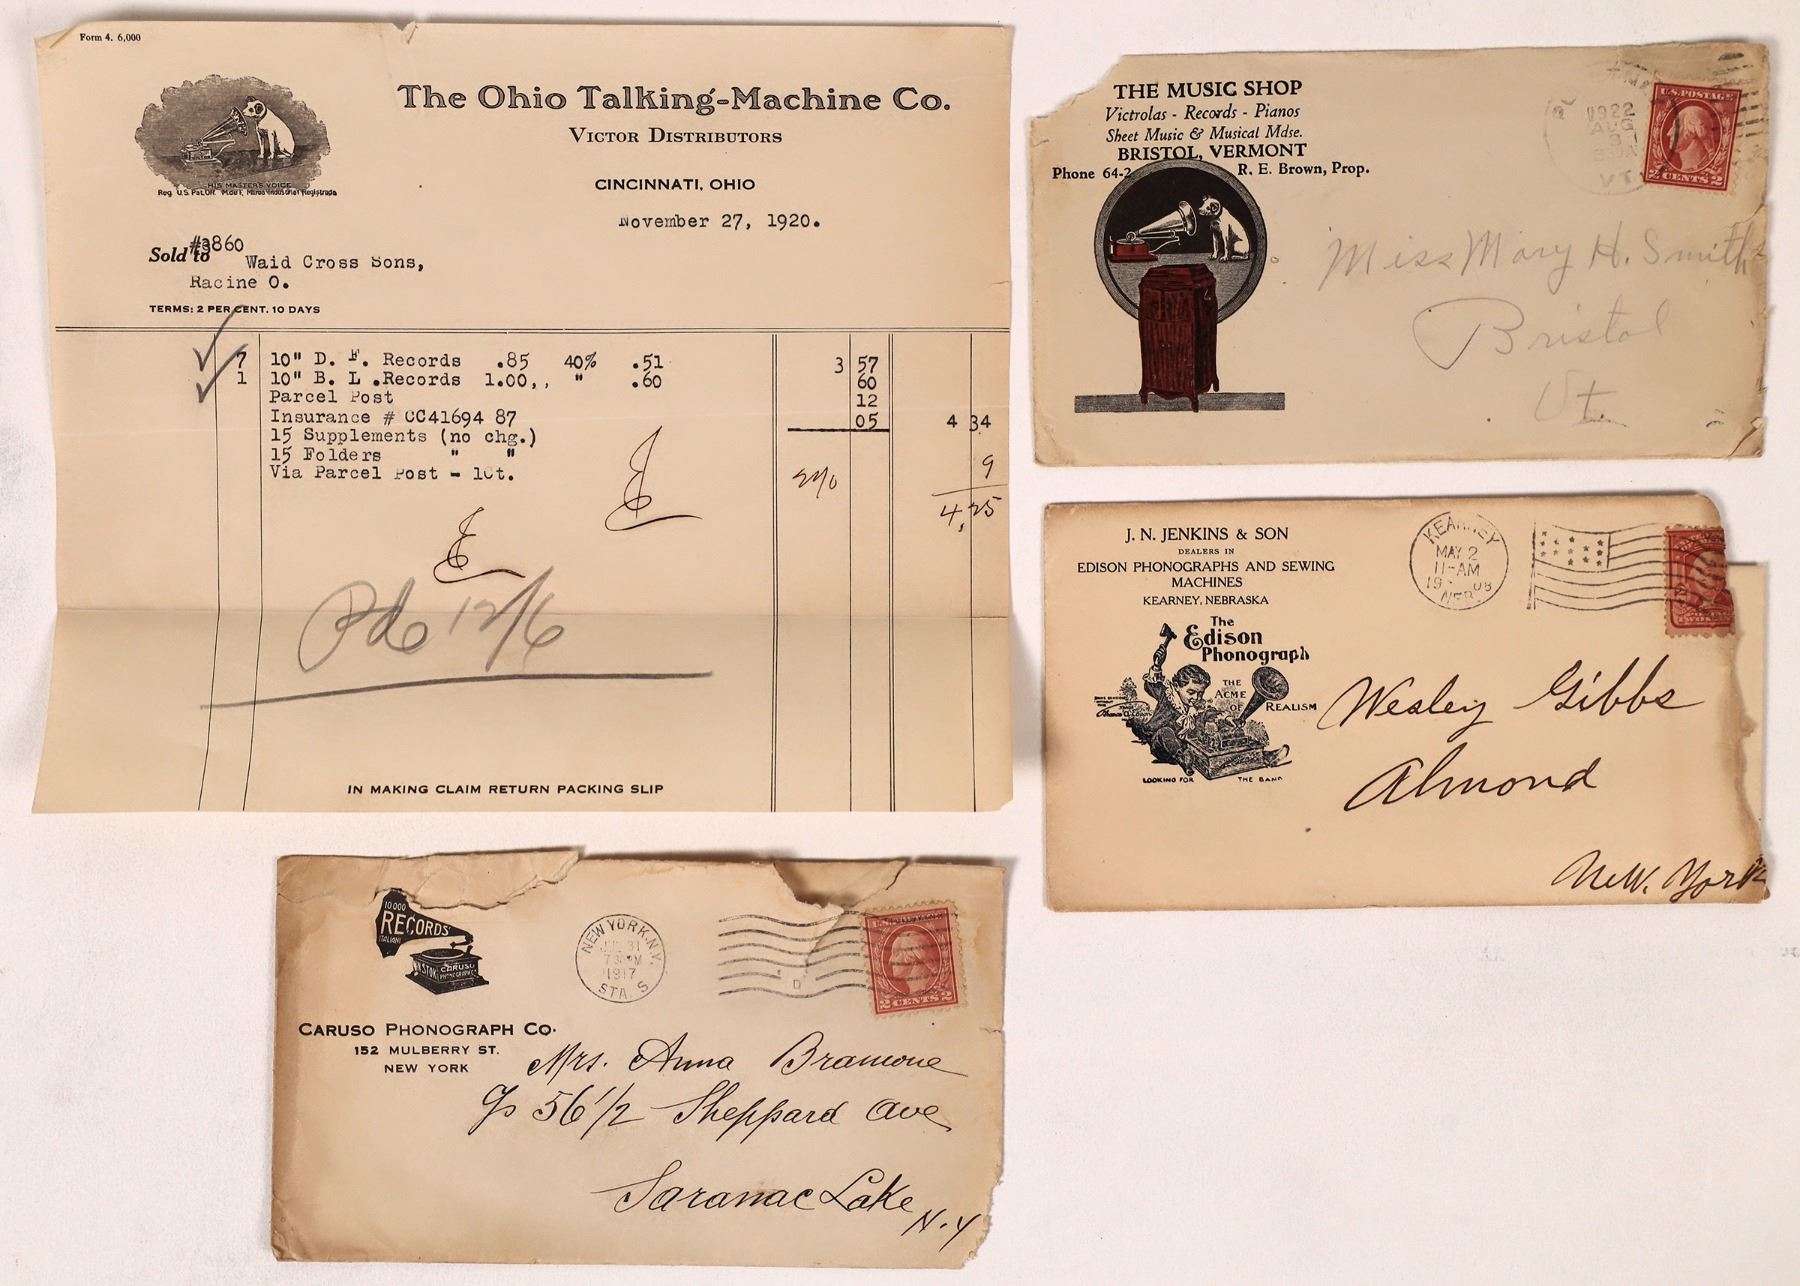 Form 4. 6,000
The Ohio Talking-Machine Co.
VICTOR DISTRIBUTORS
CINCINNATI, OHIO
HIS MASTERS VOICE
Reg. U.S. Pat. Off. M. de F. Marca Industrial Registrada
November 27, 1920.
#3860
Sold to Waid Cross Sons,
Racine O.
TERMS: 2 PER CENT. 10 DAYS
7 10" D. F. Records .85 40% .51 3 57
1 10" B. L .Records 1.00,, " .60 60
Parcel Post 12
Insurance # CC41694 87 05 4 34
15 Supplements (no chg.)
15 Folders " "
Via Parcel Post - 1Ct.
2% 9
4.25
Pd 12/6
IN MAKING CLAIM RETURN PACKING SLIP
THE MUSIC SHOP
Victrolas - Records - Pianos
Sheet Music & Musical Mdse.
BRISTOL, VERMONT
Phone 64-2 R. E. Brown, Prop.
1922
AUG
VT.
U.S. POSTAGE
2 CENTS 2
Miss Mary H. Smith
Bristol
Vt.
J. N. JENKINS & SON
DEALERS IN
EDISON PHONOGRAPHS AND SEWING
MACHINES
KEARNEY, NEBRASKA
The
Edison
Phonograph
THE
ACME
OF REALISM
LOOKING FOR THE BAND
KEARNEY
MAY 2
11-AM
NEBR.
Wesley Gibbs
Almond
New. York
10000
RECORDS
ITALIANI
CARUSO
PHONOGRAPH CO
CARUSO PHONOGRAPH CO.
152 MULBERRY ST.
NEW YORK
NEW YORK, N.Y.
JUL 31
1917
STA. S
D
2 CENTS 2
Mrs. Anna Bramone
c/o 56 1/2 Sheppard Ave
Saranac Lake
N.Y